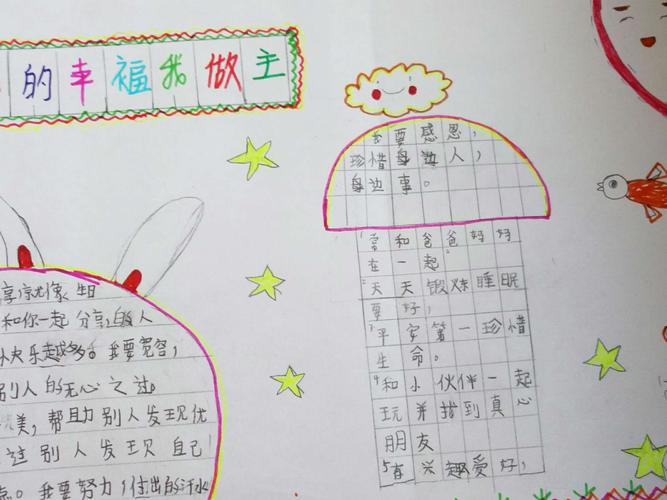 的幸福我做主
我要感恩，
珍惜身边人，
身边事。
1常和爸爸好好
在一起
2天天锻炼睡眠
要好，
3平安第一珍惜
生命。
4和小伙伴一起
玩并找到真心
朋友
5有兴趣爱好，
享，就像 生日
和你一起分享，的人
快乐越多。我要宽容，
别人的无心之过。
美，帮助别人发现优
过别人发现自己
点。我要努力，付出的汗水